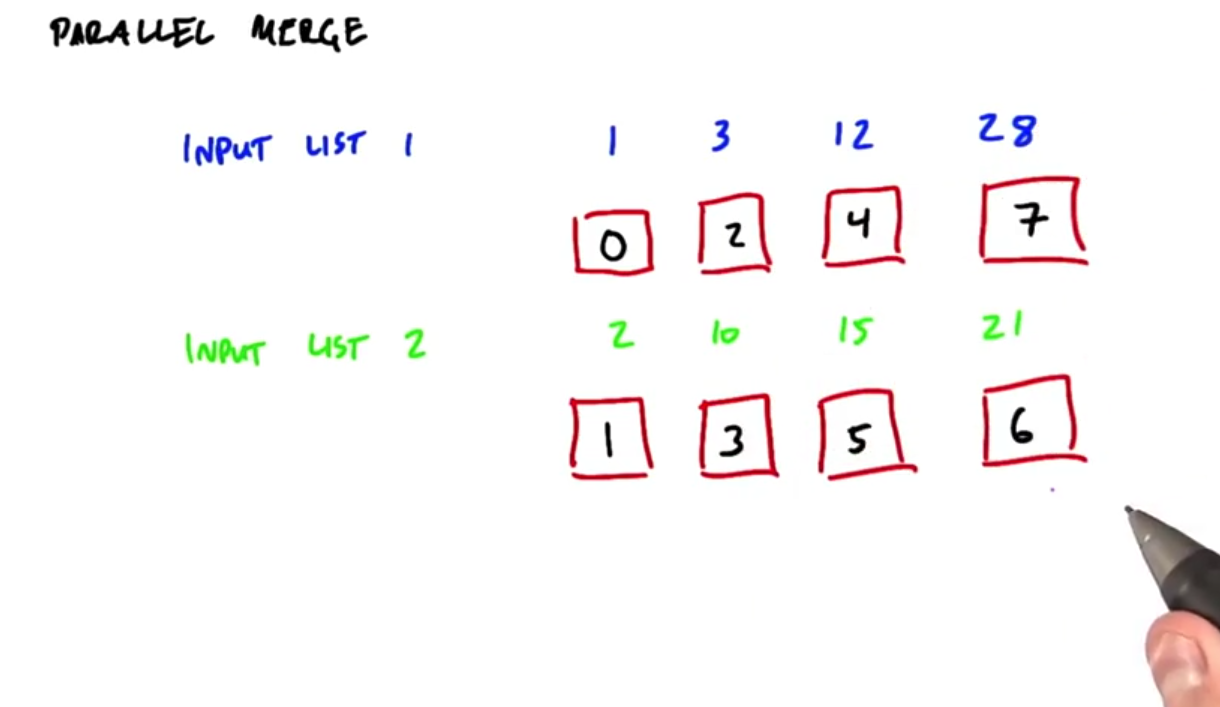 PARALLEL MERGE
INPUT LIST 1 1 3 12 28
0 2 4 7
INPUT LIST 2 2 10 15 21
1 3 5 6